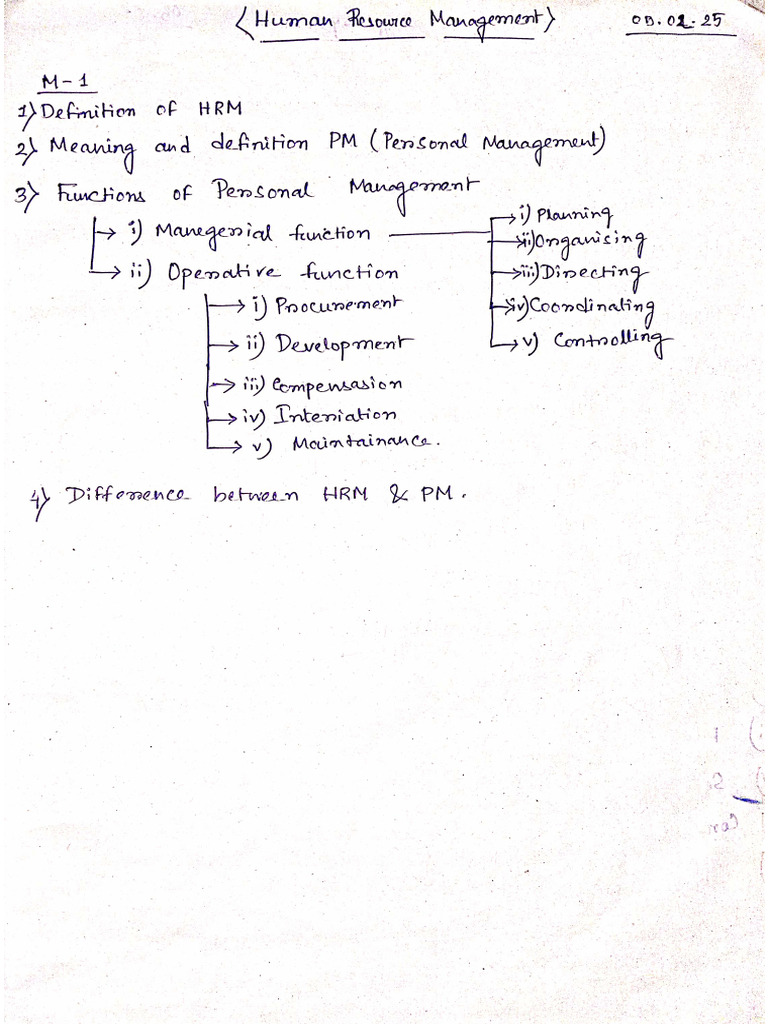 <Human Resource Management> 09.02.25
M-1
1) Definition of HRM
2) Meaning and definition PM (Personal Management)
3) Functions of Personal Management
→ i) Manegerial function
→ i) Planning
→ ii) Organising
→ iii) Directing
→ iv) Coordinating
→ v) Controlling
→ ii) Operative function
→ i) Procurement
→ ii) Development
→ iii) Compensasion
→ iv) Interiation
→ v) Maintainance.
4) Difference between HRM & PM.